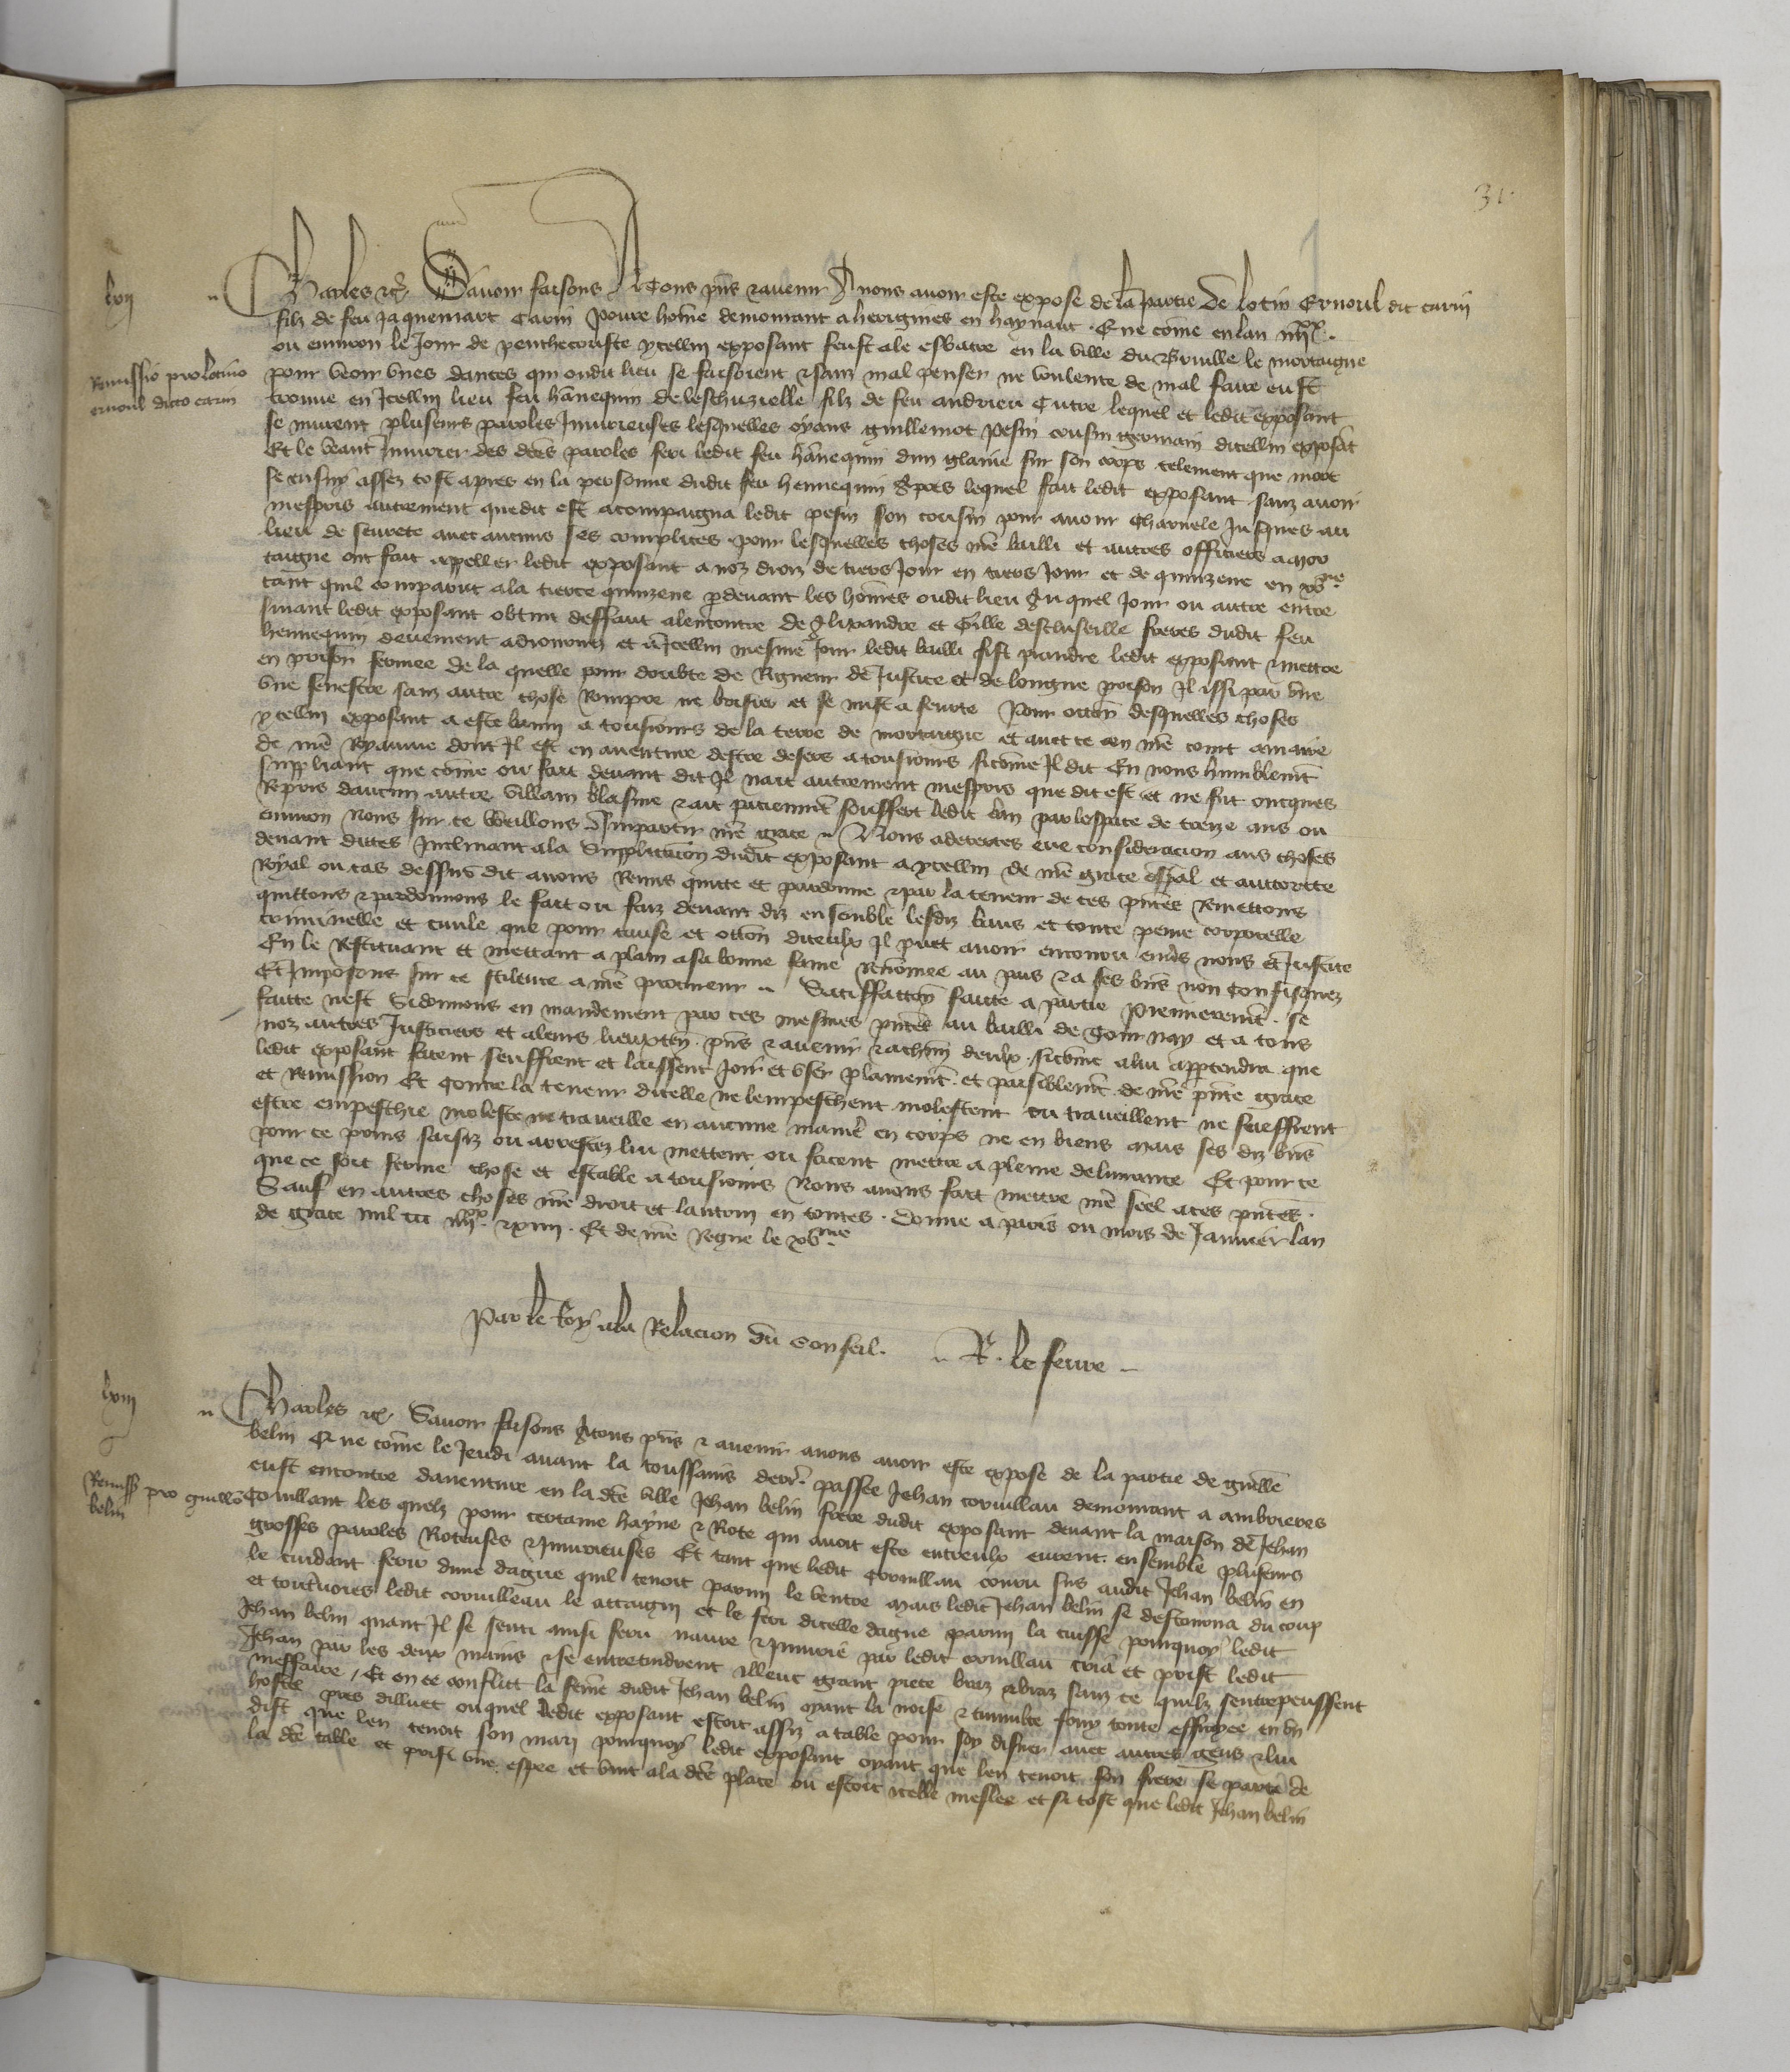 31.
lvii
Charles etc. Savoir faisons A tous pns et avenir A nous avoir este expose de la partie De lotin Ernoul dit carin
filz de feu Jaquemart Carin povre home demourant a herignies en haynaut. Que come en lan iiiixx.
ou environ le Jour de penthecouste ycellui exposant feust ale esbatre en la ville du Bruille le mortaigne
Remissio pro lotino
ernoul dicto carin
pour veoir unes dances qui oudit lieu se faisoient et sanz mal penser ne voulente de mal faire eust
trouve en Icellui lieu feu hanequin de leschuzielle filz de feu andrieu Cutre lequel et ledit exposant
se murent plusieurs paroles Injurieuses lesquelles oyans guillemot pesin cousin germain dicellui exposat
Et le veant Injurier des dces paroles feri ledit feu hanequin dun glaive sur son corps telement que mort
se ensuy assez tost apres en la personne dudit feu hennequin Apres lequel fait ledit exposant sanz avoir
mespris autrement que dit est acompaigna ledit pesin son cousin pour amour charnele Jusques au
lieu de seurete avec aucuns ses complices. pour lesquelles choses nre bailli et autres officiers a mor
taigne ont fait appeller ledit exposant a noz droiz de tiers Jour en tiers Jour et de quinzene en xvne
tant quil comparut a la tierce quinzene pdevant les homes oudit lieu Auquel Jour ou autre entre
suivant ledit exposant obtint deffaut alencontre de Alixandre et Gille descluseille freres dudit feu
hennequin deuement adjournez et a Icellui mesme Jour ledit bailli fist prandre ledit exposant et mettre
en prison fermee de la quelle pour doubte de Rigueur de Justice et de longue prison Il issi par une
une fenestre sanz autre chose Rompre ne brisier et se mist a seurte Pour occon desquelles choses
ycellui exposant a este banni a tousiours de la terre de mortaigne et avec ce en nre court a maire
de nre Royaume dont Il est en aventure destre desers a tousiours sicome Il dit En nous humblemt
suppliant que come ou fait devant dit Il nait autrement mespris que dit est et ne fut oncques
Repris daucun autre villain blasme et ait paciemmt souffert ledit ban par lespace de treze ans ou
environ Nous sur ce vueillons Impartir nre grace Nous adecertes eue consideracion aus choses
devant dittes Inclinant ala Supplicacion dudit exposant a ycellui de nre grace espal et auctorite
Royal ou cas dessus dit avons Remis quitte et pardonne et par la teneur de ces pntes Remettons
quittons et pardonnons le fait ou faiz devant diz ensemble lesdiz bans et toute peine corporelle
criminelle et civile que pour cause et occon diceulx Il puet avoir encouru envs nous et Justice
En le Restituant et mettant a plain a sa bonne fame Renomee au pais et a ses bns non confisquez
Et Imposons sur ce scilence a nre procureur Satisfaccon faicte a partie premieremt. se
faicte nest Si donnons en mandement par ces mesmes pntes au bailli de Tournay et a tous
noz autres Justiciers et a leurs lieuxten. pns et avenir et a chun deulx. sicome a lui appartendra que
ledit exposant facent seuffrent et laissent Joir et user plainemt. et paisiblemt de nre pnte grace
et Remission Et contre la teneur dicelle ne lempeschent molestent ou travaillent ne seuffrent
estre empeschie moleste ne travaille en aucune manie en corps ne en biens mais ses diz bns
pour ce prins saisiz ou arrestez lui mettent ou facent mettre a pleine delivrance Et pour ce
que ce soit ferme chose et estable a tousiours Nous avons fait mettre nre seel a ces pntes.
Sauf en autres choses nre droit et lautrui en toutes. Donne a paris ou mois de Janvier lan
de grace mil ccc iiiixx. et xiiii. Et de nre Regne le xvme
Par le Roy ala Relacion du Conseil. R. le fevre
lviii
Charles etc. Savoir faisons A tous pns et avenir a nous avoir este expose de la partie de guille
belin Que come le Jeudi avant la toussains derr. passee Jehan corvillau demourant a ambrieres
Remiss pro guillo
belin
eust encontre daventure en la dce ville Jehan belin frere dudit exposant devant la maison de Jehan
Couillant les quelz pour certaine hayne et Rote qui avoit este entreulx eurent ensemble plusieurs
grosses paroles Roteuses et Injurieuses Et tant que ledit Corvillau couru sus audit Jehan belin en
le cuidant ferir dune dague quil tenoit parmi le ventre Mais ledit Jehan belin se destourna du coup
et toutvoies ledit corvilleau le attaigni et le feri dicelle dague parmi la cuisse pourquoy ledit
Jehan belin quant Il se senti ainsi feru navre et Injurie par ledit corvillau cria et prist ledit
Jehan par les deux mains et se entretindrent illeuc grant piece braz a braz sanz ce quilz sentrepeussent
meffaire / Et en ce conflict la feme dudit Jehan belin oyant la noise et tumulte fouy toute effrayee en un
hostel pres dilluec ouquel ledit exposant estoit assiz a table pour soy disner avec autres gens et lui
dist que len tenoit son mary pourquoy ledit exposant oyant que len tenoit son frere se parti de
la dce table et prist une espee et vint ala dce place ou estoit icelle meslee et si tost que ledit Jehan belin